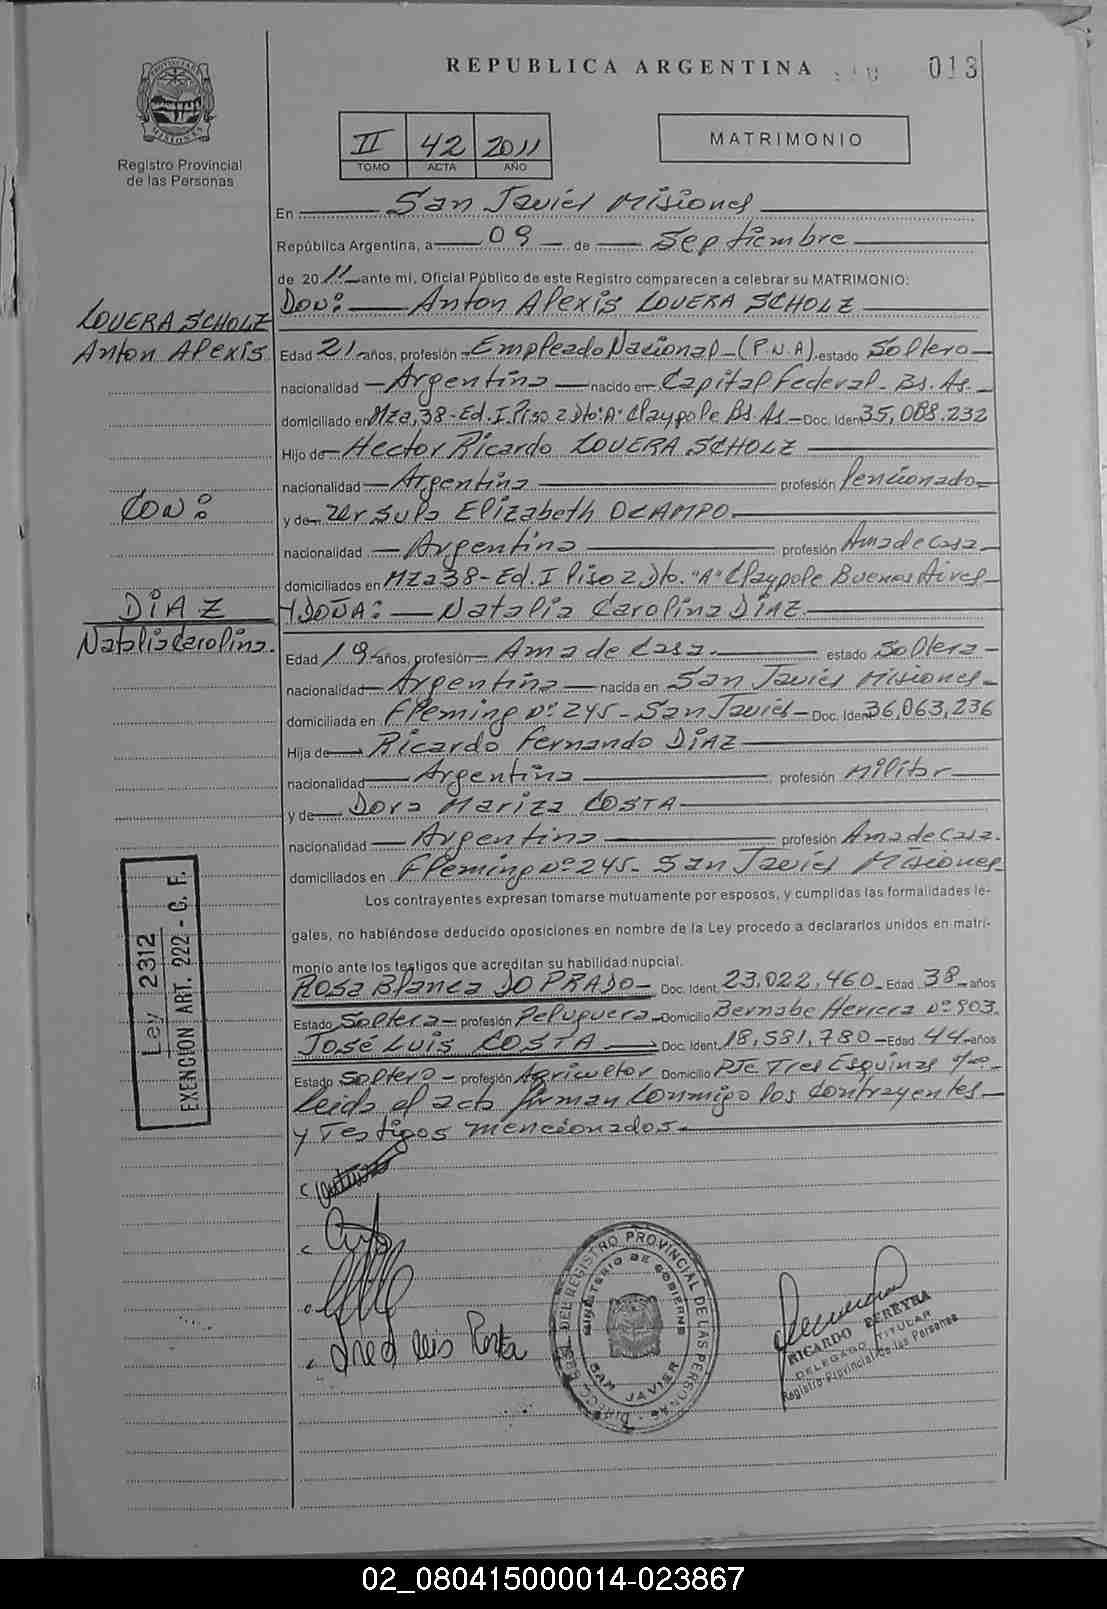 REPUBLICA ARGENTINA
013
PROVINCIA DE MISIONES
Registro Provincial
de las Personas
II 42 2011
TOMO ACTA AÑO
MATRIMONIO
En San Javier Misiones
República Argentina, a 09 de Septiembre
de 2011 ante mi, Oficial Público de este Registro comparecen a celebrar su MATRIMONIO:
LOVERA SCHOLZ
Anton Alexis
CON:
DIAZ
Natalia Carolina.
DON: Anton Alexis LOVERA SCHOLZ
Edad 21 años, profesión Empleado Nacional (P.N.A) estado Soltero
nacionalidad Argentina nacido en Capital Federal Bs. As.
domiciliado en Mza, 38-Ed. I Piso 2 Dto: "A" Claypole Bs. As Doc. Iden 35,088.232
Hijo de Hector Ricardo LOVERA SCHOLZ
nacionalidad Argentina profesión Pencionado
y de Ursula Elizabeth OCAMPO
nacionalidad Argentina profesión Ama de casa
domiciliados en Mza 38-Ed. I Piso 2 Dto. "A" Claypole Buenos Aires
Y DOÑA: Natalia Carolina DIAZ.
Edad 19 años, profesión Ama de Casa. estado Soltera
nacionalidad Argentina nacida en San Javier Misiones
domiciliada en Fleming Nº 245 San Javier Doc. Iden 36,063,236
Hija de Ricardo Fernando DIAZ
nacionalidad Argentina profesión Militar
y de Dora Mariza COSTA
nacionalidad Argentina profesión Ama de Casa.
domiciliados en Fleming Nº 245 San Javier Misiones
Los contrayentes expresan tomarse mutuamente por esposos, y cumplidas las formalidades le-
gales, no habiéndose deducido oposiciones en nombre de la Ley procedo a declararlos unidos en matri-
monio ante los testigos que acreditan su habilidad nupcial.
Rosa Blanca DO PRADO Doc. Ident. 23,022,460 Edad 38 años
Estado Soltera profesión Peluquera Domicilio Bernabe Herrera Nº 903.
JOSÉ LUIS COSTA Doc. Ident. 18,581,780 Edad 44 años
Estado Soltero profesión Agricultor Domicilio Pje Tres Esquinas
Leida el acta firman conmigo los contrayentes
y Testigos mencionados.
Ley 2312
EXENCION ART. 222 - C. F.
DEL REGISTRO PROVINCIAL DE LAS PERSONAS
MINISTERIO DE GOBIERNO
SAN JAVIER
RICARDO PEREYRA
DELEGADO TITULAR
Registro Provincial de las Personas
02_080415000014-023867